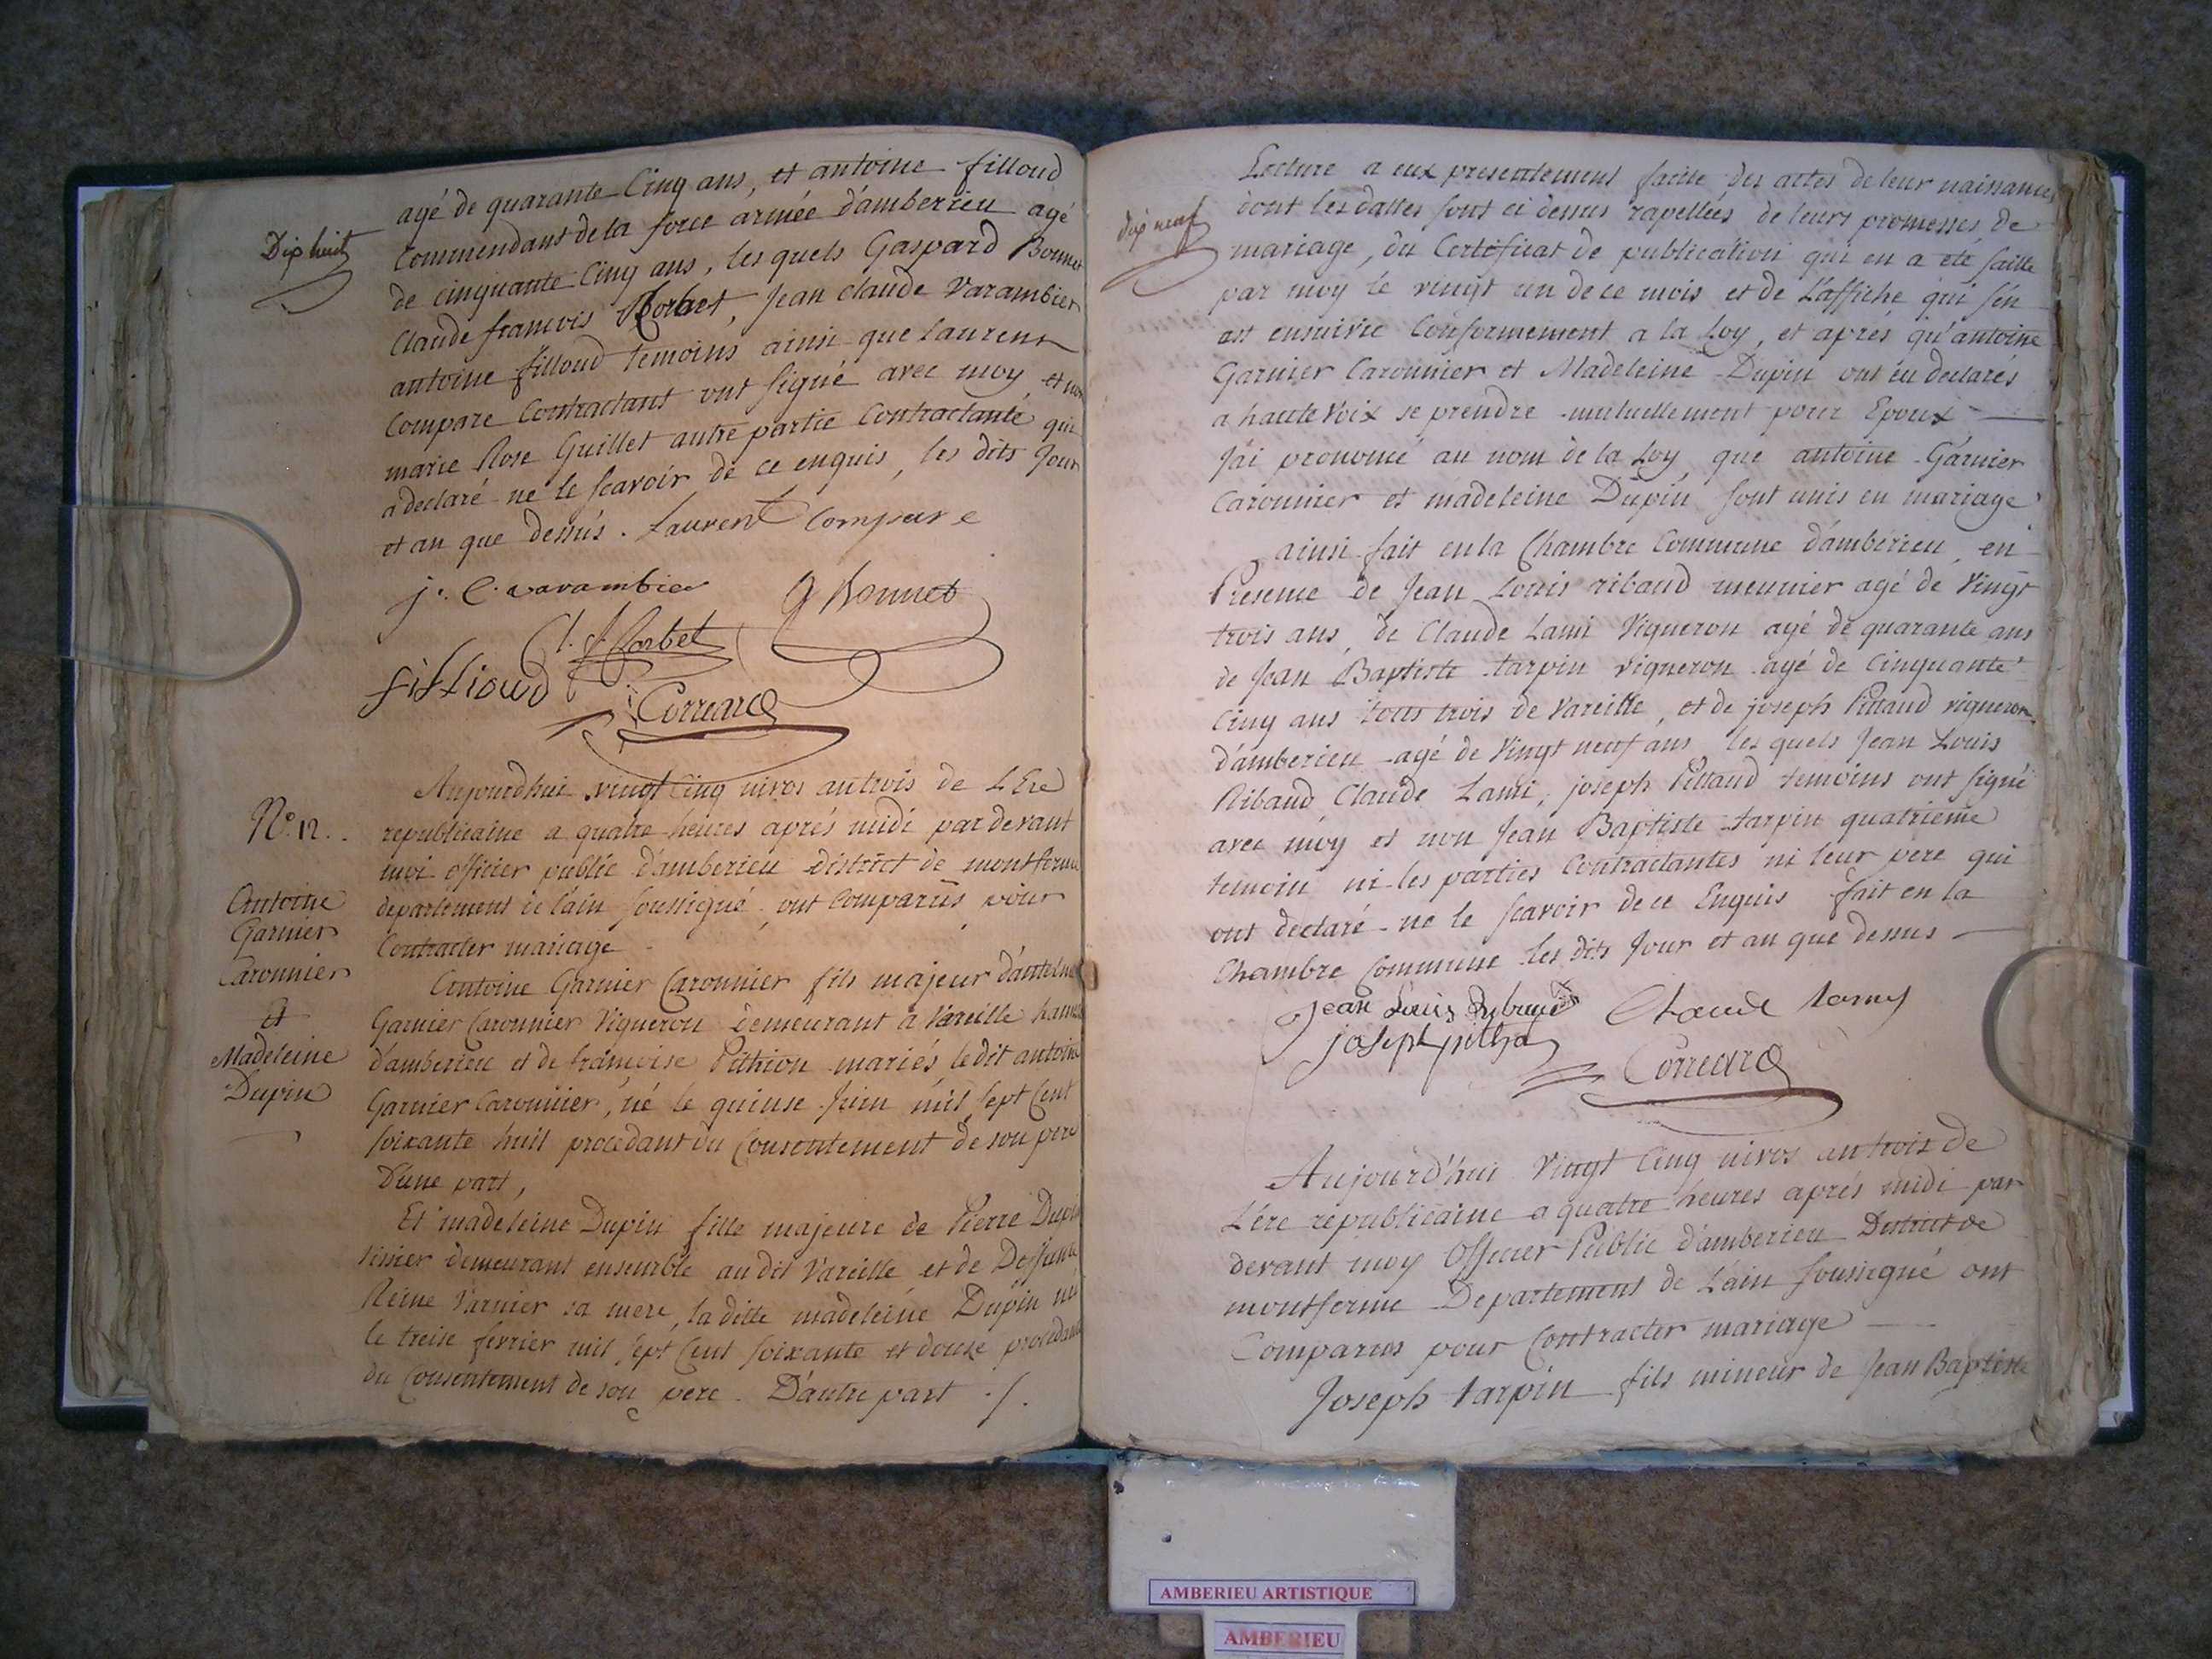 Dix huit
agé de quarante Cinq ans, et antoine filloud
Commendant de la force armée d'amberieu agé
de cinquante Cinq ans, les quels Gaspard Bonnet
Claude francois Corbet, Jean claude Varambier
antoine filloud temoins ainsi que laurent
Compare Contractant ont signé avec moy et non
marie Rose Guillet autre partie Contractante qui
a declaré ne le scavoir de ce enquis, les dits Jour
et an que dessus. Laurent Compare
j. C. varambier
G Bonnet
Cl. f Corbet
fillioud
Correard
N° 12.
Antoine
Garnier
Caronnier
Et
Madeleine
Dupin
Aujourdhui vingt Cinq nivos an trois de L'Ere
republicaine a quatre heures aprés midi par devant
moi officier public d'amberieu District de montferme
departement de l'ain soussigné ont Comparus pour
Contracter mariage
Antoine Garnier Caronnier fils majeur d'antelme
Garnier Caronnier Vigneron demeurant a Vareille hameau
d'amberieu et de francoise Pithion mariés, le dit antoine
Garnier Caronnier, né le quinse Juin mil sept Cent
soixante huit procedant du Consentement de son pere
D'une part,
Et madeleine Dupin fille majeure de Pierre Dupin
tissier demeurant ensemble au dit Vareille et de Deffunte
Reine Varnier sa mere, la ditte madeleine Dupin née
le treise fevrier mil sept Cent soixante et douze procedante
du Consentement de son pere. D'autre part ./.
dix neuf
Lecture a eux presentement faitte des actes de leur naissances
dont les dattes sont ci dessus rapellées de leurs promesses de
mariage, du Certificat de publication qui en a eté faitte
par moy le vingt un de ce mois et de L'affiche qui s'en
est ensuivie Conformement a la Loy, et aprés qu'antoine
Garnier Caronnier et Madeleine Dupin ont eu declarés
a haute Voix se prendre mutuellement pour Epoux
J'ai prononcé au nom de la Loy, que antoine Garnier
Caronnier et madeleine Dupin sont unis en mariage
ainsi fait en la Chambre Commune d'amberieu, en
Presence de Jean Louis ribaud meunier agé de Vingt
trois ans, de Claude Lami Vigneron agé de quarante ans
de Jean Baptiste tarpin vigneron agé de Cinquante
Cinq ans tous trois de Vareille, et de joseph Pittaud vigneron
d'amberieu agé de Vingt neuf ans les quels Jean Louis
Ribaud Claude Lami, joseph Pittaud temoins ont signé
avec moy et non Jean Baptiste tarpin quatrieme
temoin ni les parties Contractantes ni leur pere qui
ont declaré ne le scavoir de ce Enquis fait en la
Chambre Commune les dits Jour et an que dessus
Jean Louis
Claude Lamy
joseph
Correard
Aujourd'hui Vingt Cinq nivos an trois de
L'ére republicaine a quatre heures aprés midi par
devant moy Officier Public d'amberieu District de
montferme Departement de L'ain soussigné ont
Comparus pour Contracter mariage
Joseph tarpin fils mineur de Jean Baptiste
AMBERIEU ARTISTIQUE
AMBERIEU